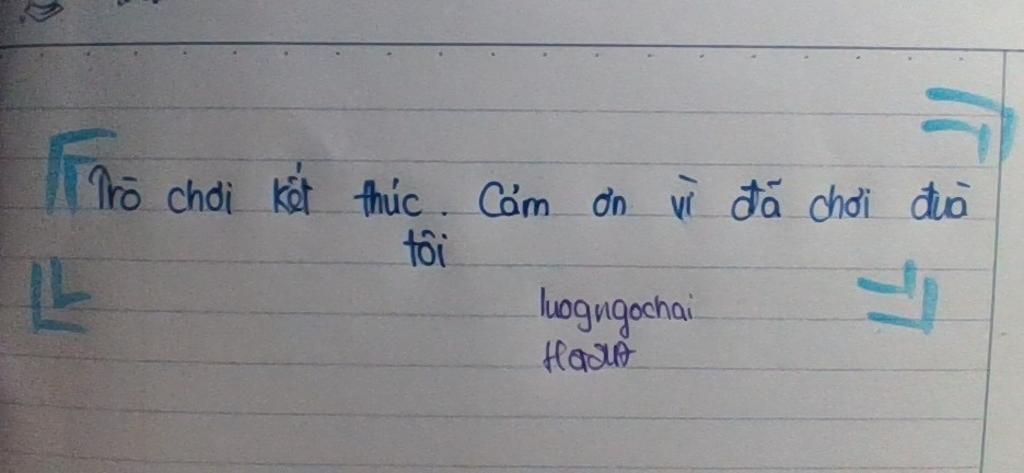 Trò chơi kết thúc. Cảm ơn vì đã chơi đuà
tôi
luogngochai